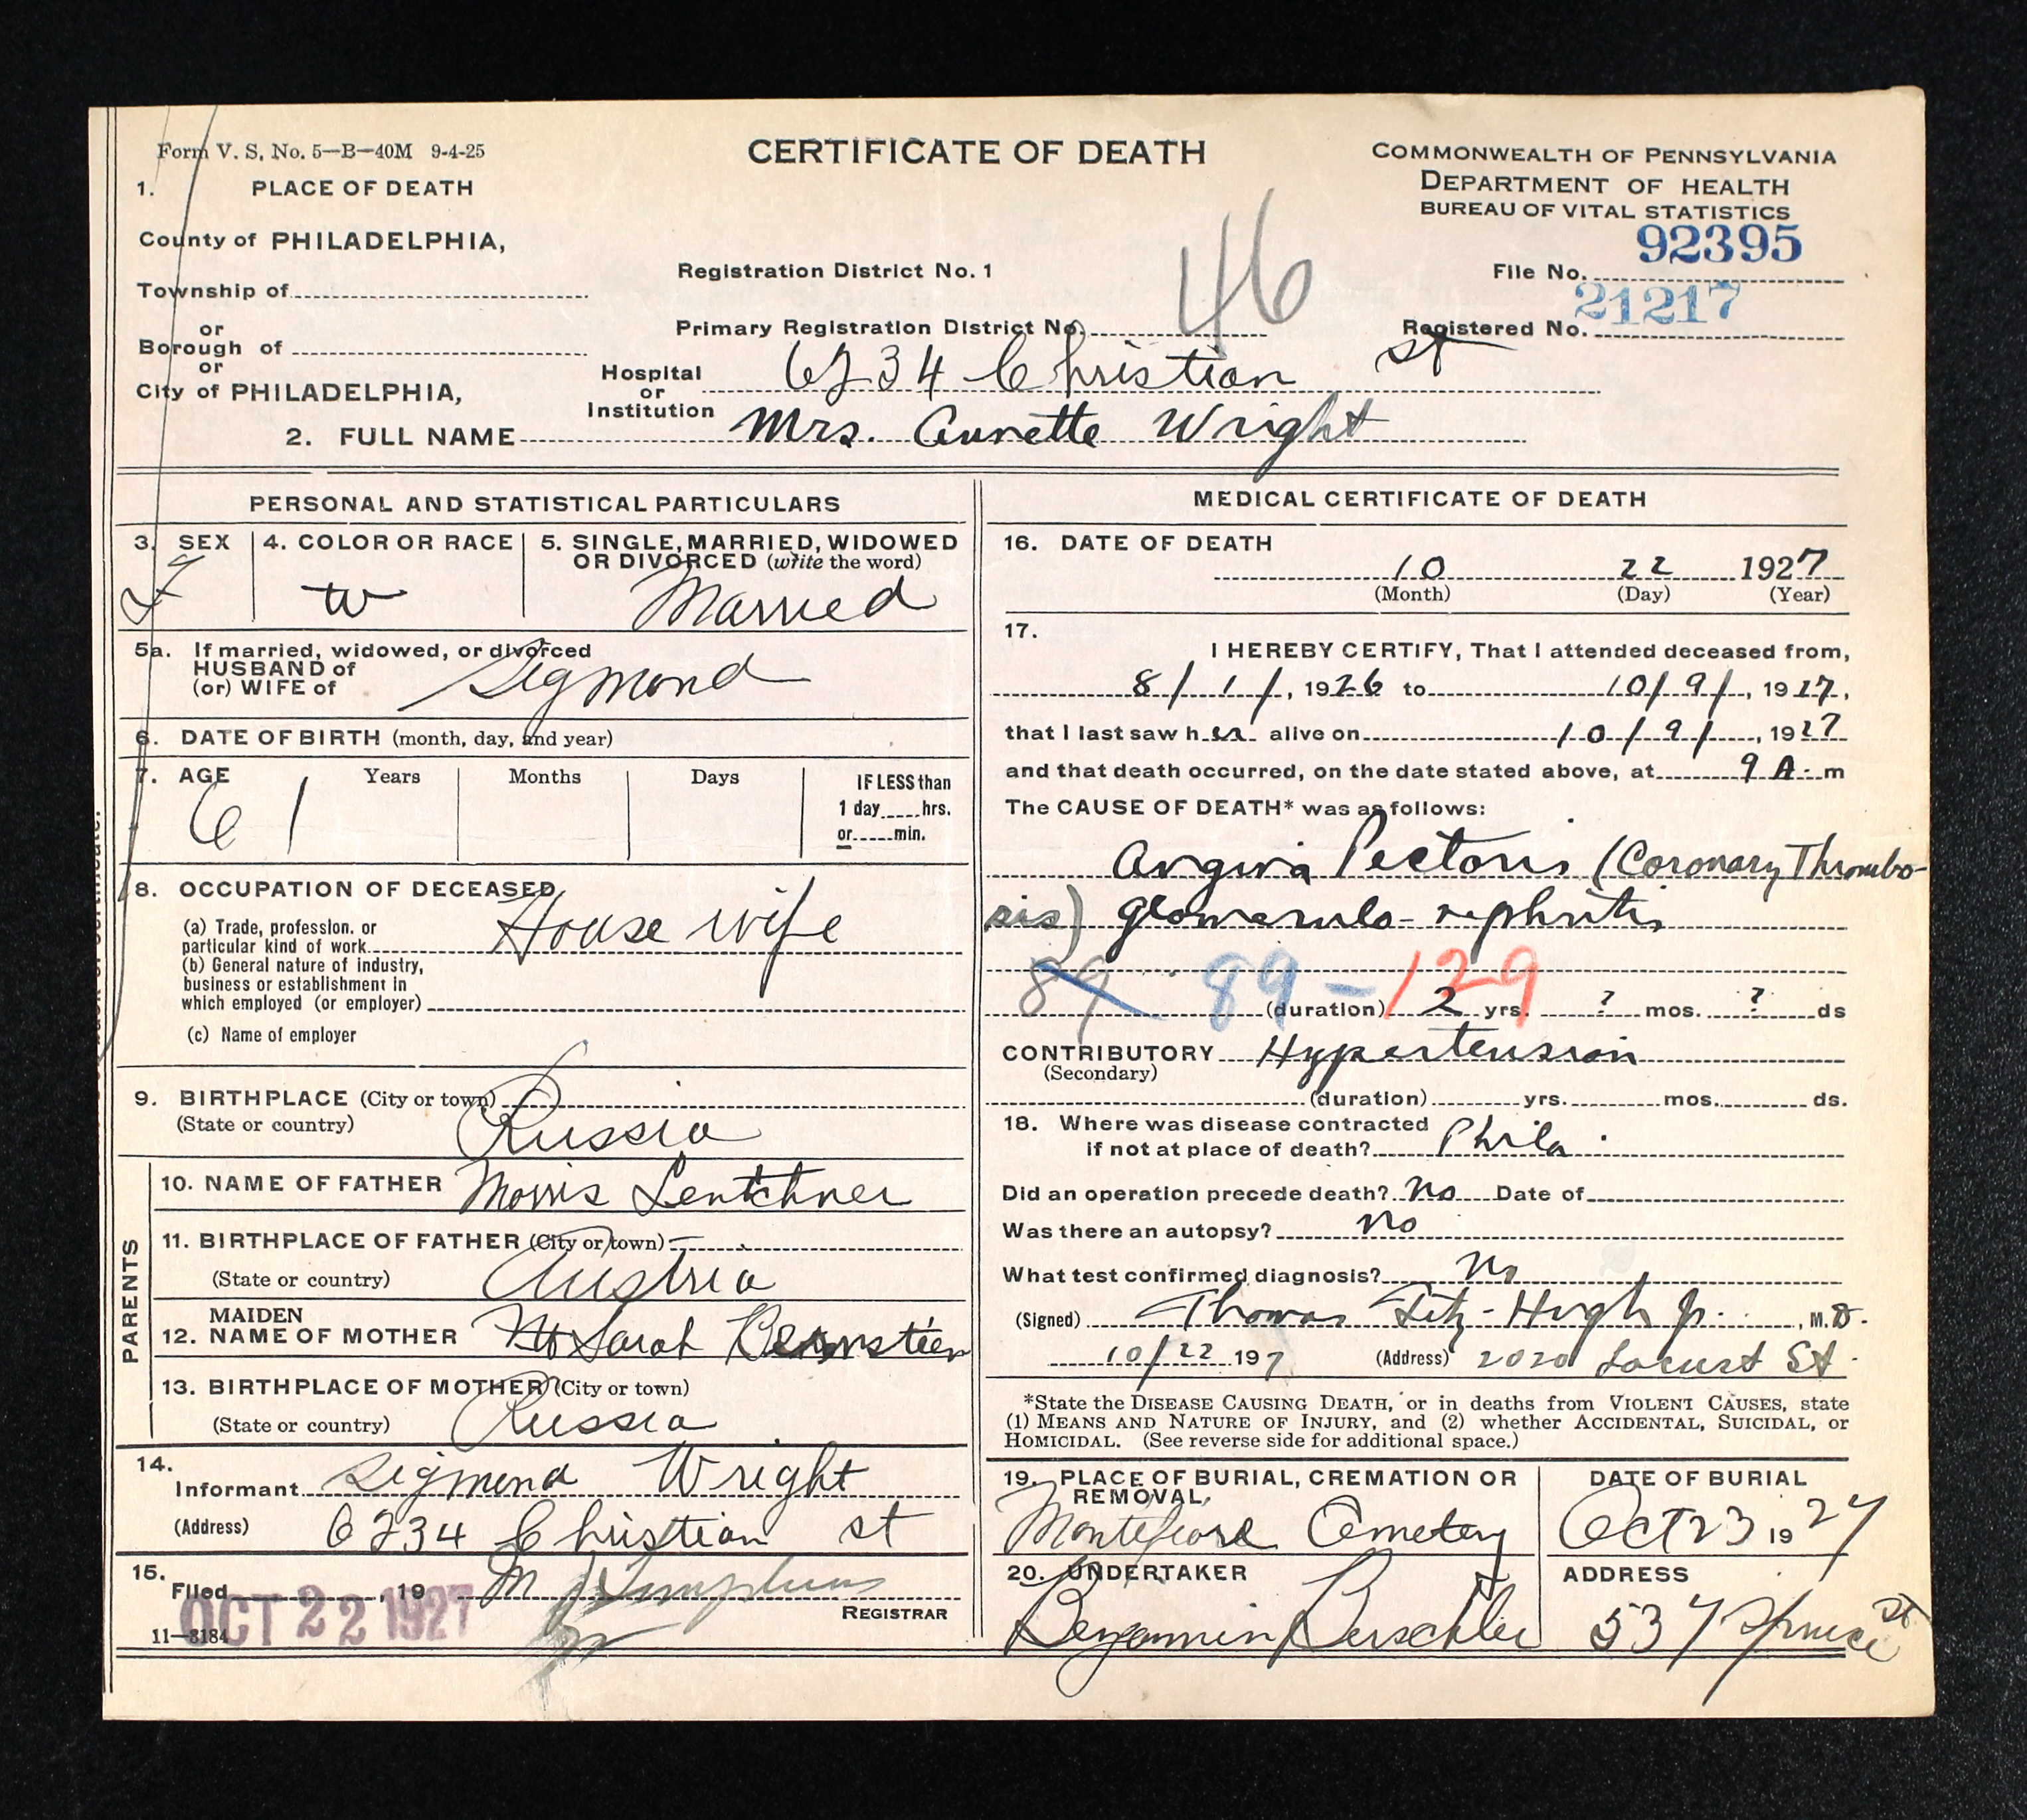 Form V. S. No. 5—B—40M 9-4-25
CERTIFICATE OF DEATH
COMMONWEALTH OF PENNSYLVANIA
DEPARTMENT OF HEALTH
BUREAU OF VITAL STATISTICS
1. PLACE OF DEATH
County of PHILADELPHIA,
Township of
or
Borough of
or
City of PHILADELPHIA,
Registration District No. 1
Primary Registration District No. 46
File No. 92395
Registered No. 21217
Hospital or Institution 6234 Christian St
2. FULL NAME Mrs. Annette Wright
PERSONAL AND STATISTICAL PARTICULARS
3. SEX F
4. COLOR OR RACE W
5. SINGLE, MARRIED, WIDOWED
OR DIVORCED (write the word)
Married
5a. If married, widowed, or divorced
HUSBAND of
(or) WIFE of Sigmond
6. DATE OF BIRTH (month, day, and year)
7. AGE 61 Years Months Days IF LESS than
1 day hrs.
or min.
8. OCCUPATION OF DECEASED
(a) Trade, profession, or
particular kind of work House wife
(b) General nature of industry,
business or establishment in
which employed (or employer)
(c) Name of employer
9. BIRTHPLACE (City or town)
(State or country) Russia
PARENTS
10. NAME OF FATHER Morris Lentchner
11. BIRTHPLACE OF FATHER (City or town)
(State or country) Austria
12. MAIDEN NAME OF MOTHER Sarah Bernstien
13. BIRTHPLACE OF MOTHER (City or town)
(State or country) Russia
14.
Informant Sigmond Wright
(Address) 6234 Christian st
15.
Filed OCT 22 1927, 19 M
REGISTRAR
11—3184
MEDICAL CERTIFICATE OF DEATH
16. DATE OF DEATH
10 22 1927
(Month) (Day) (Year)
17.
I HEREBY CERTIFY, That I attended deceased from,
8/1/, 1926 to 10/9/, 1927,
that I last saw her alive on 10/9/, 1927
and that death occurred, on the date stated above, at 9 A. m
The CAUSE OF DEATH* was as follows:
Angina Pectoris (Coronary Thrombo-
sis) Glomerulo-nephritis
89 89 – 129
(duration) 2 yrs. ? mos. ? ds
CONTRIBUTORY Hypertension
(Secondary)
(duration) yrs. mos. ds.
18. Where was disease contracted
if not at place of death? Phila.
Did an operation precede death? No Date of
Was there an autopsy? no
What test confirmed diagnosis? No
(Signed) Thomas Fitz-Hugh Jr., M.D.
10/22 197 (Address) 2020 Locust St.
*State the DISEASE CAUSING DEATH, or in deaths from VIOLENT CAUSES, state
(1) MEANS AND NATURE OF INJURY, and (2) whether ACCIDENTAL, SUICIDAL, or
HOMICIDAL. (See reverse side for additional space.)
19. PLACE OF BURIAL, CREMATION OR
REMOVAL,
Montefiore Cemetery
DATE OF BURIAL
Oct 23 1927
20. UNDERTAKER
Benjamin Berschler
ADDRESS
537 Spruce St